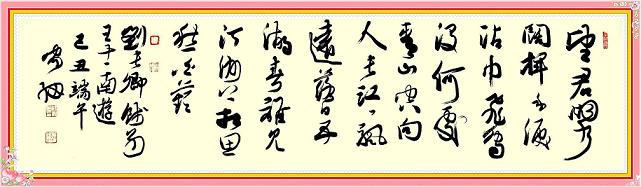 望君煙水
闊揮手淚
沾巾飛鳥
沒何處
青山空向
人長江一帆
遠落日五
湖春誰見
汀洲上相思
愁白蘋
劉長卿餞別
王十一南遊
己丑端午